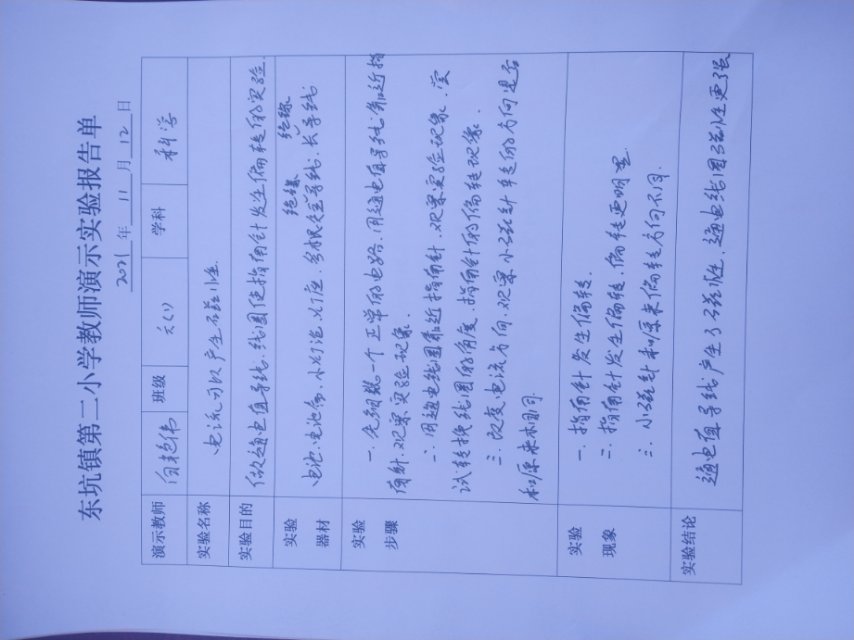 东坑镇第二小学教师演示实验报告单
2021年 11 月 12 日
演示教师 班级 六(1) 学科 科学
实验名称 电流可以产生磁性.
实验目的 做通电直导线.线圈使指南针发生偏转的实验.
实验器材 电池.电池盒.小灯泡.灯座.多根短导线.长导线
绝缘 绝缘
实验步骤 一.先组装一个正常的电路.用通电直导线靠近指
南针.观察实验现象.
二.用通电线圈靠近指南针.观察实验现象.尝
试转换线圈的角度.指南针的偏转现象.
三.改变电流方向.观察小磁针转的方向是否
和原来相同.
实验现象 一.指南针发生偏转.
二.指南针发生偏转.偏转更明显.
三.小磁针和原来偏转方向不同.
实验结论 通电直导线产生了磁性.通电线圈磁性更强